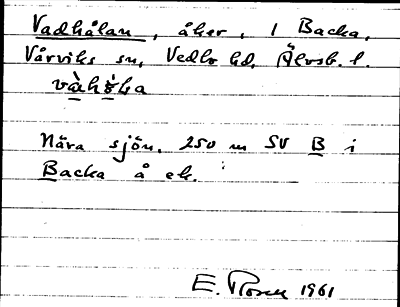 Vadhålan, åker, 1 Backa,
Vårviks sn, Vedbo hd, Älvsb. l.
Nära sjön. 250 m SV B i
Backa å ek.
E. 1961